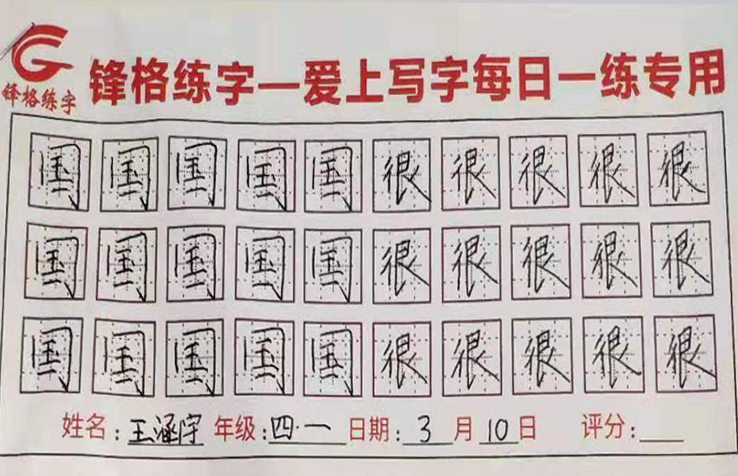 锋格练字
锋格练字—爱上写字每日一练专用
国国国国国很很很很很
国国国国国很很很很很
国国国国国很很很很很
姓名：王涵宇 年级：四·一 日期：3月10日 评分：